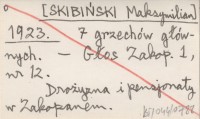 [SKIBIŃSKI Maksymilian]
1923. 7 grzechów głów-
nych. — Głos Zakop. 1,
nr 12.
Drożyzna i pensjonaty
w Zakopanem.